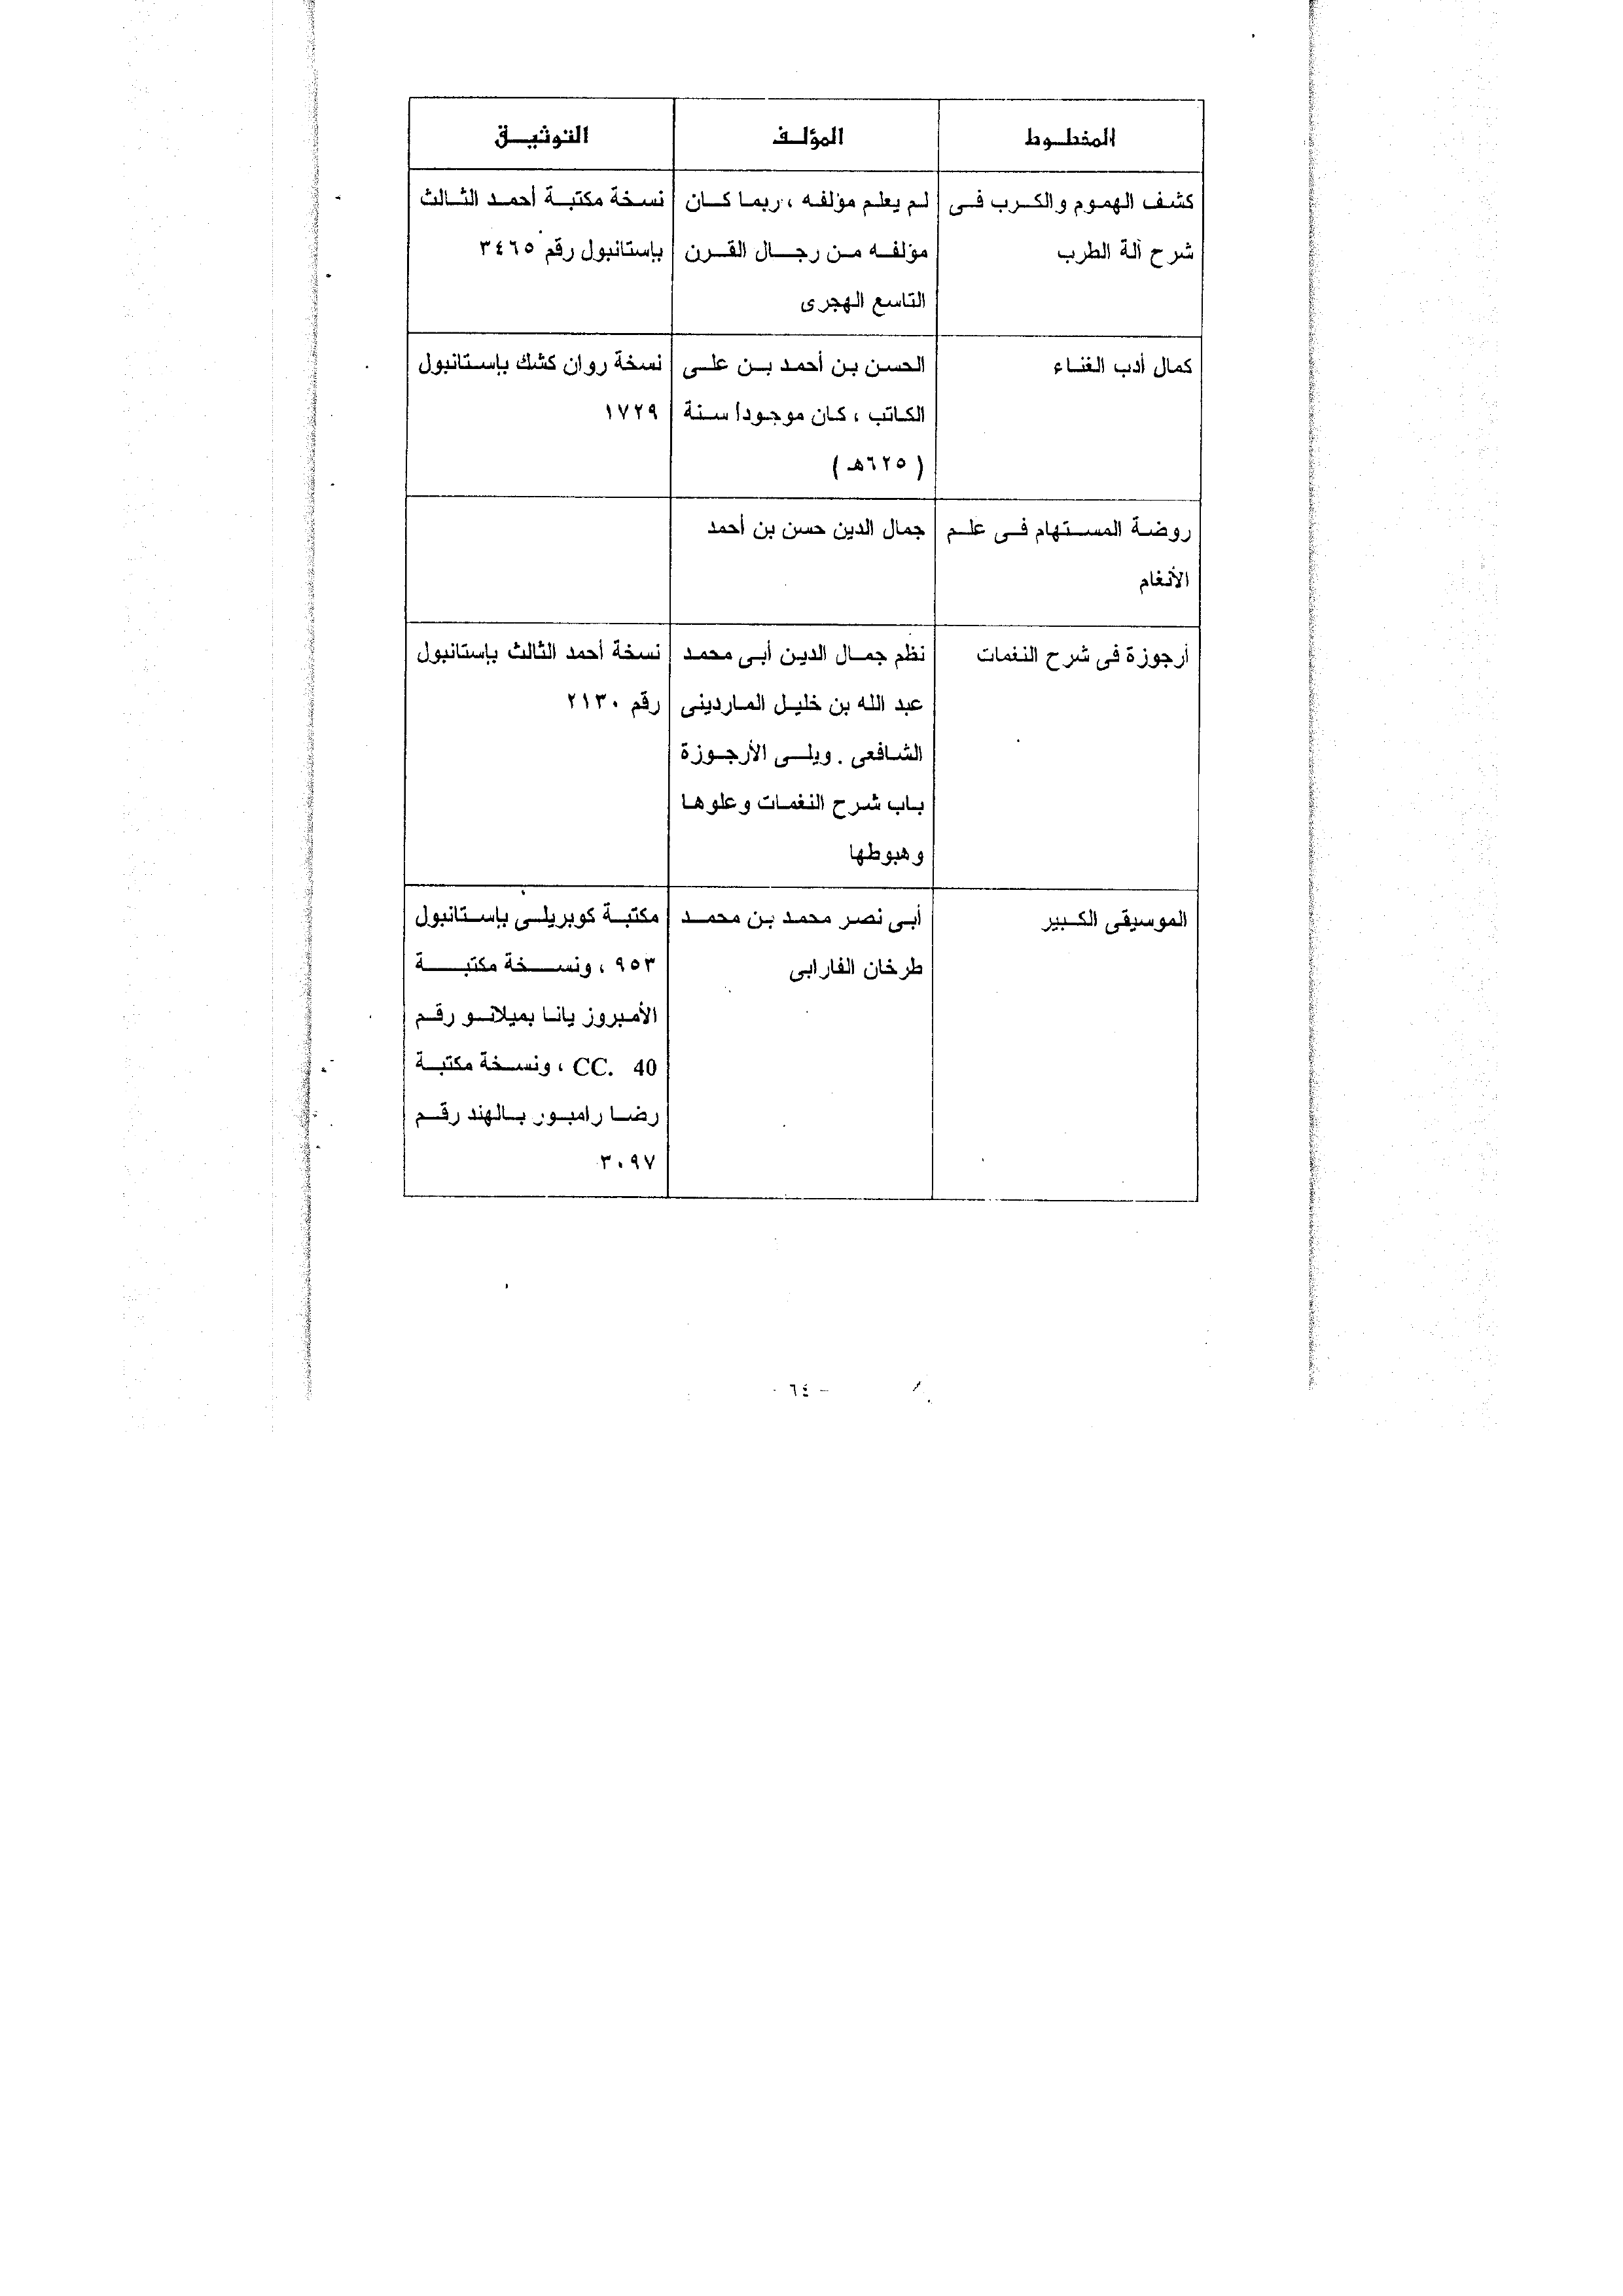 المخطوط
المؤلف
التوثيق
كشف الهموم والكرب فى
شرح آلة الطرب
لم يعلم مؤلفه ، ربما كان
مؤلفه من رجال القرن
التاسع الهجرى
نسخة مكتبة أحمد الثالث
بإستانبول رقم ٣٤٦٥
كمال أدب الغناء
الحسن بن أحمد بن على
الكاتب ، كان موجودا سنة
( ٦٢٥هـ )
نسخة روان كشك بإستانبول
١٧٢٩
روضة المستهام فى علم
الأنغام
جمال الدين حسن بن أحمد
أرجوزة فى شرح النغمات
نظم جمال الدين أبى محمد
عبد الله بن خليل الماردينى
الشافعى . ويلى الأرجوزة
باب شرح النغمات وعلوها
وهبوطها
نسخة أحمد الثالث بإستانبول
رقم ٢١٣٠
الموسيقى الكبير
أبى نصر محمد بن محمد
طرخان الفارابى
مكتبة كوبريلى بإستانبول
٩٥٣ ، ونسخة مكتبة
الأمبروز يانا بميلانو رقم
CC. 40 ، ونسخة مكتبة
رضا رامبور بالهند رقم
٣٠٩٧
- ٦٤ -